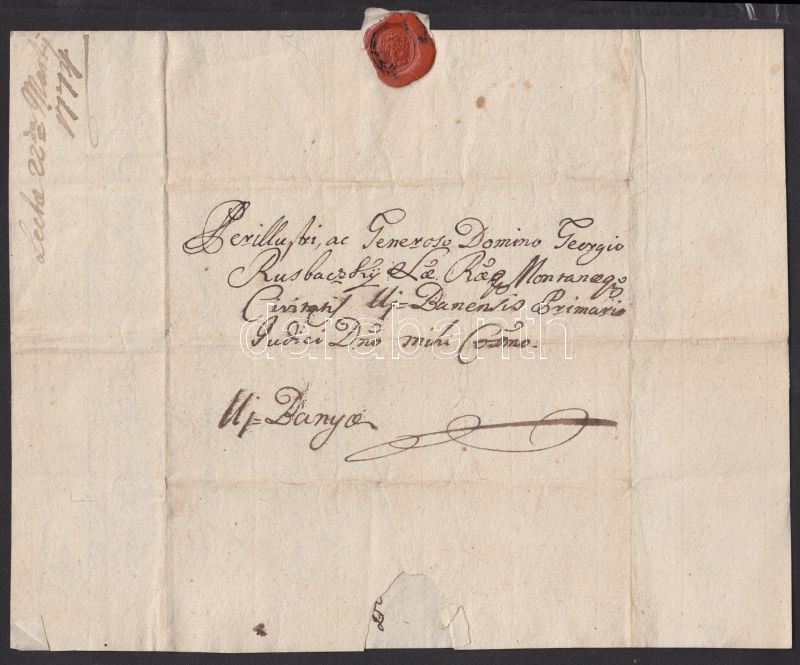 Lecta 22da Martÿ
1774
Perillustri, ac Generoso Domino Georgio
Rusbaczkÿ Lae Rae Montanaeq
Civitatis Uj=Banensis Primario
Judici Dno mihi Cosmo.
Uj=Banyae
darabanth